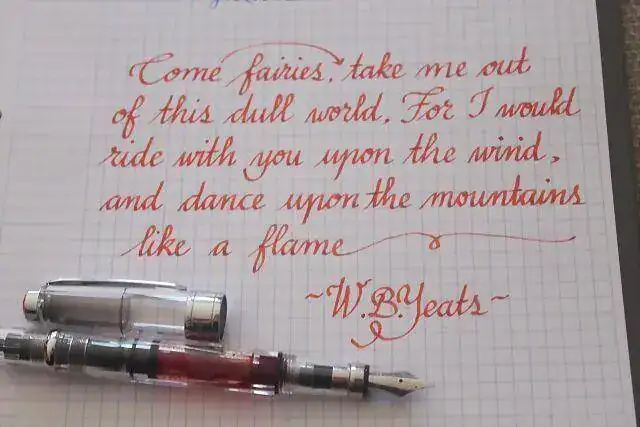 Come fairies, take me out
of this dull world, For I would
ride with you upon the wind,
and dance upon the mountains
like a flame
~W.B.Yeats~